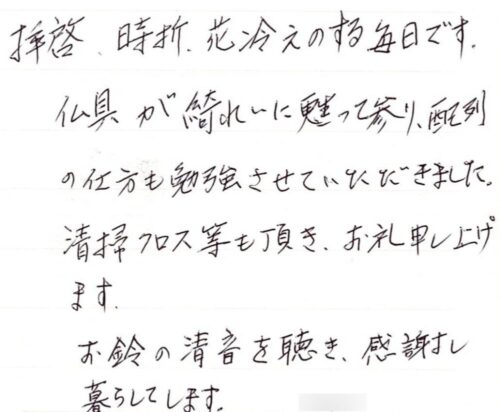 拝啓、時折、花冷えのする毎日です。
仏具が綺れいに甦って参り、配列
の仕方も勉強させていただきました。
清掃クロス等も頂き、お礼申し上げ
ます。
お鈴の清音を聴き、感謝し
暮らしてします。